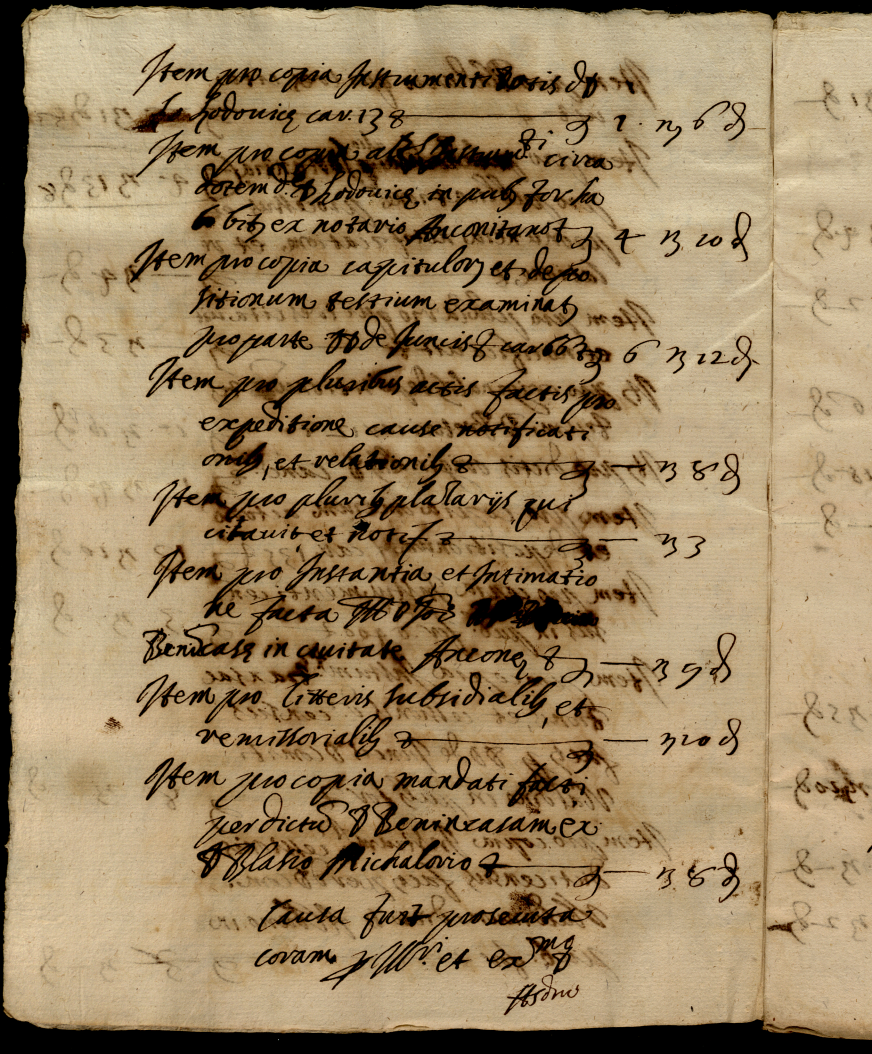 Item pro copia Instrumenti dotis d. D
Lodovicę car. 138 — 1 · n 6 d
Item pro copia circa
dotem d. D Lodovicę in pub. for. ha
bit. ex notario Anconitanot 4 n 10 d
Item pro copia capitulorz et depo
sitionum testium examinat
pro parte DD de Juncis car 66 6 n 12 d
Item pro pluribus actis factis pro
expeditione cause notificati
onib, et relationib — n 8 d
Item pro plurib plazarijs qui
citavit et notif — n 3
Item pro Instantia et Intimatio
ne facta
Benincasę in civitate Anconę — n 9 d
Item pro litteris subsidialib, et
remissorialib — n 10 d
Item pro copia mandati facti
per dictũ D Benincasam ex
D Blasio Michalovio — n 8 d
Causa fuit prosecuta
coram et ex.mo